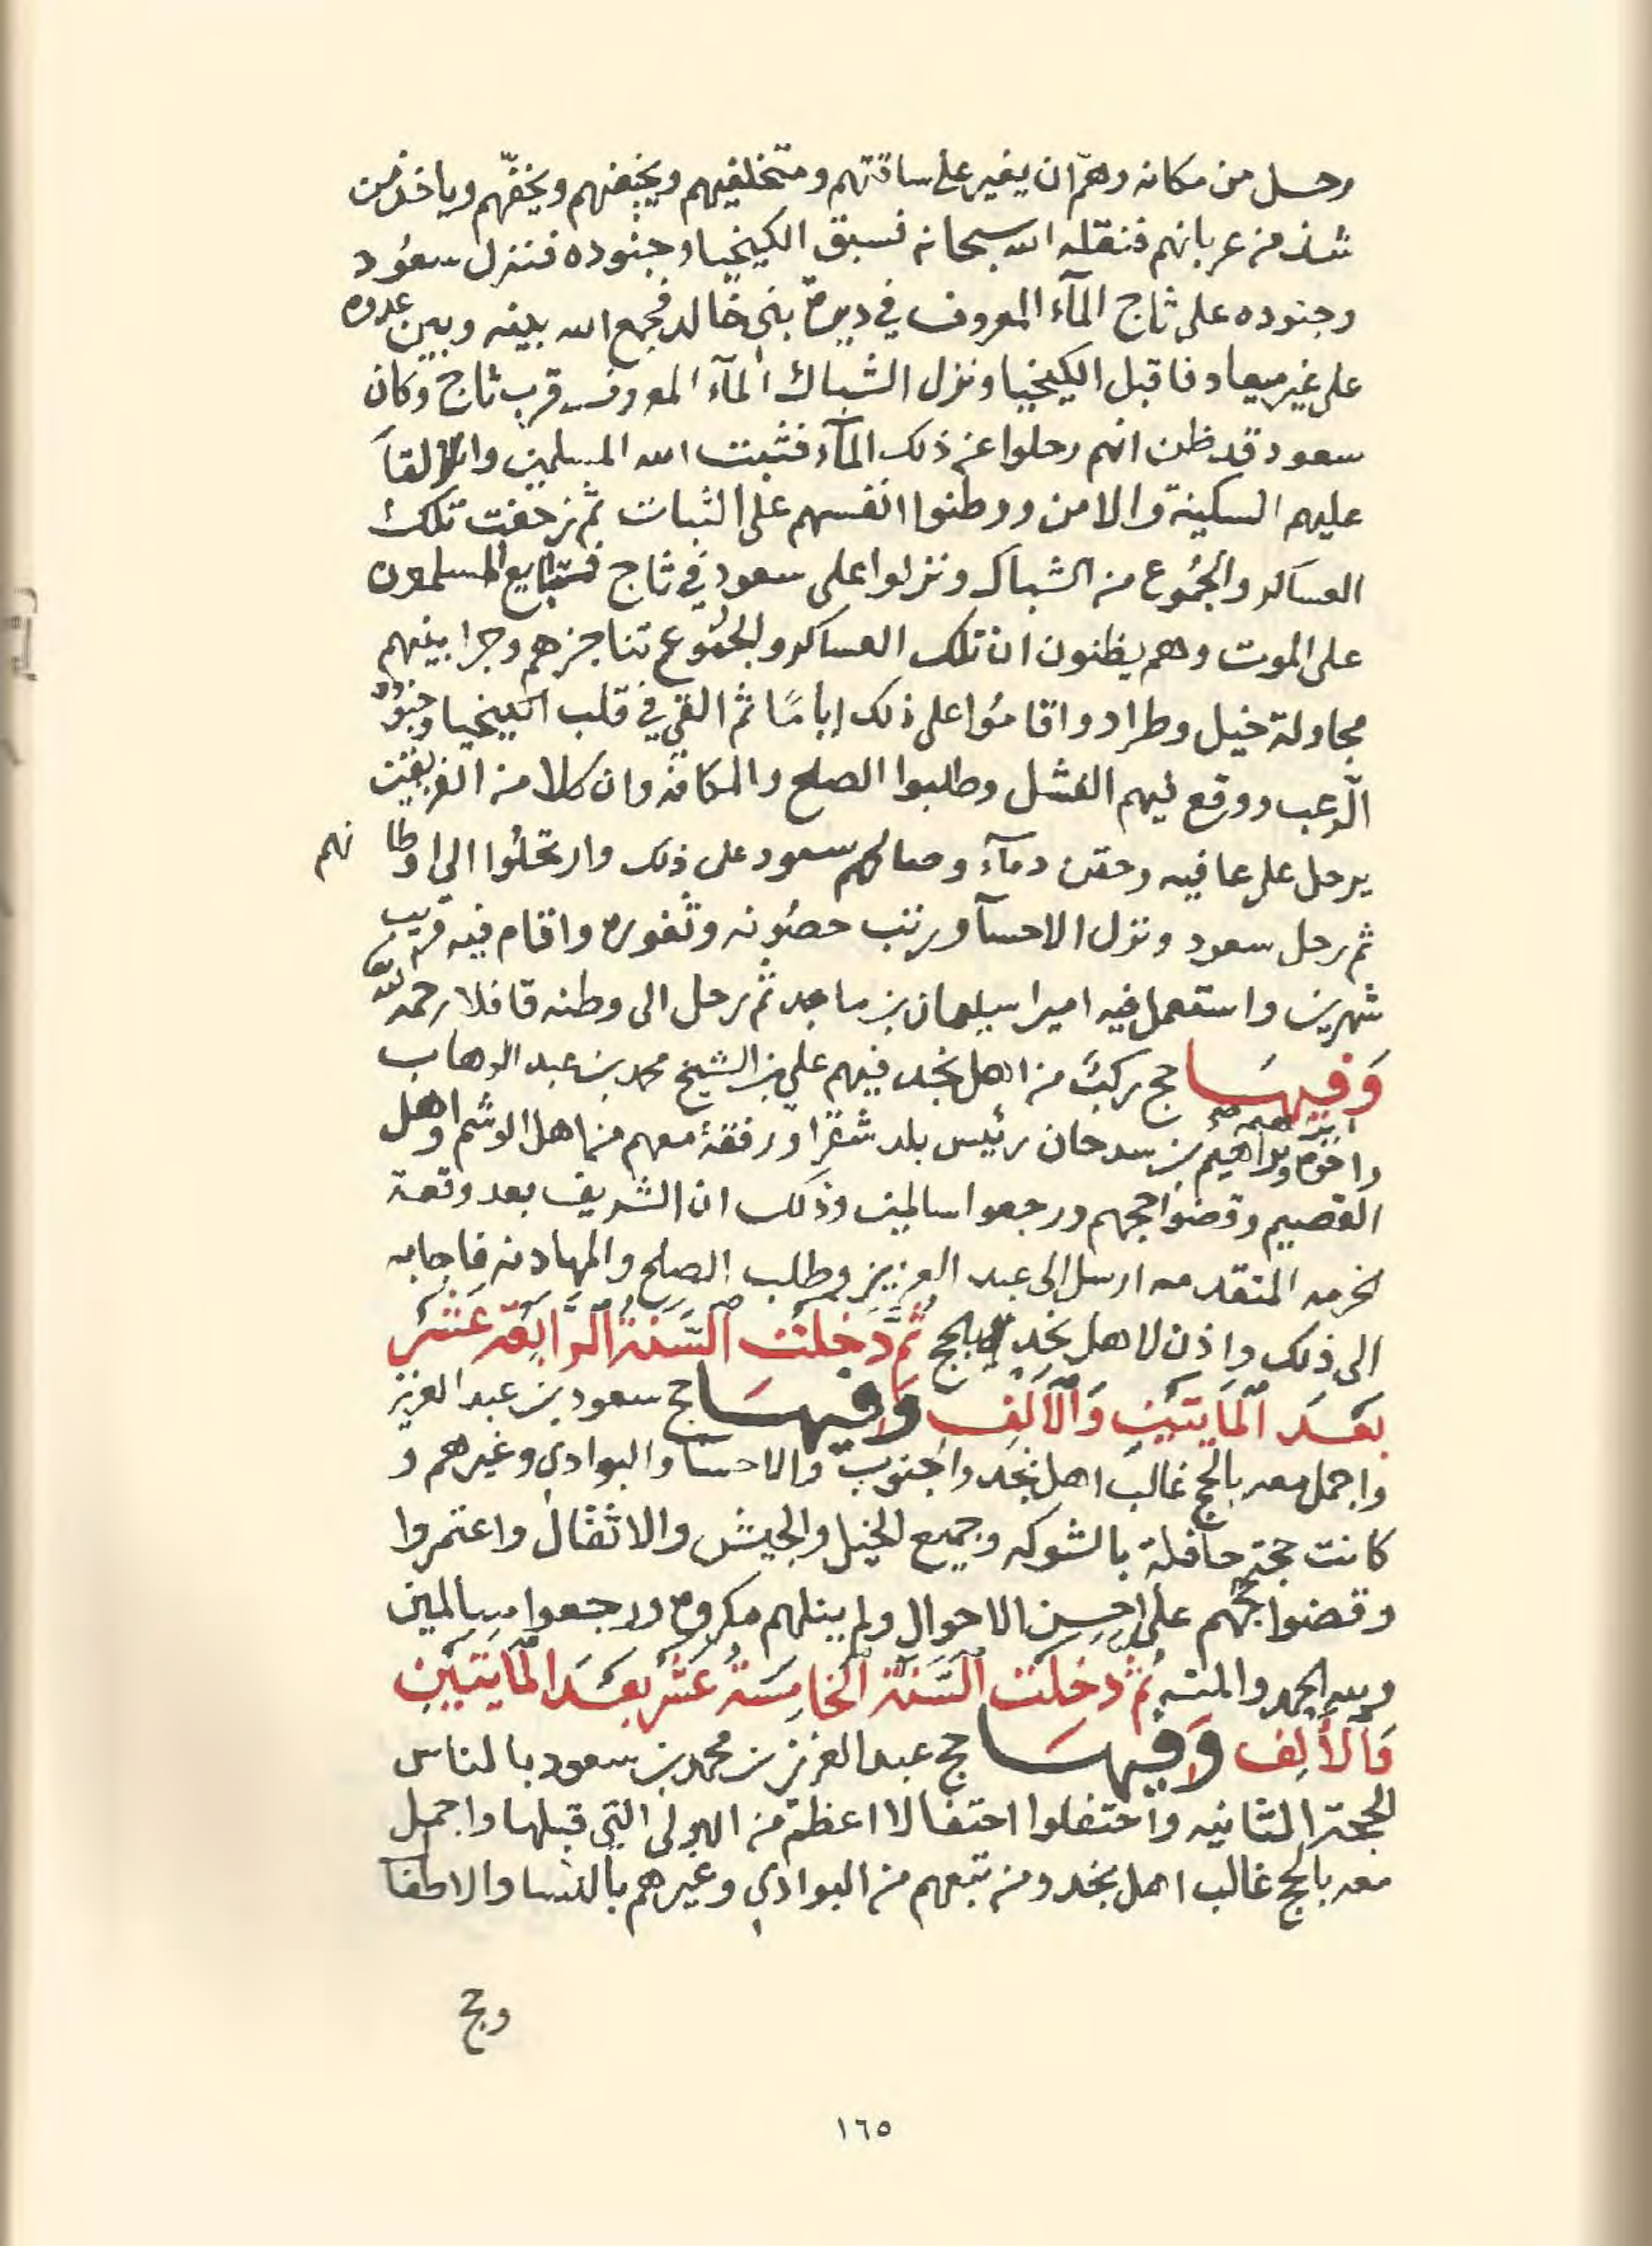 رحل من مكانه وهمّ ان يغير على ساقتهم ومتخلفيهم ويخيفهم ويخفّهم وياخذ من
شذ من عربانهم فنقله الله سبحانه فسبق الكيخيا وجنوده فنزل سعُود
وجنوده على ثاج المآء المعروف في ديرة بني خالد فجمع الله بينه وبين عدوه
على غير ميعاد فاقبل الكيخيا ونزل الشباك المآء المعروف قرب ثاج وكان
سعود قد ظن انهم رحلوا عن ذلك المآء فثبت الله المسلمين والقآ
عليهم السكينة والامن ووطنوا انفسهم على الثبات ثم زحفت تلك
العساكر والجُموع من الشباك ونزلوا على سعود في ثاج فتبايع المسلمون
على الموت وهم يظنون ان تلك العساكر والجمُوع تناجزهم وجرا بينهم
مجاولة خيل وطراد واقامُوا على ذلك ايامًا ثم القى في قلب الكيخيا وجنوده
الرّعب ووقع فيهم الفشل وطلبوا الصلح والمكافه وان كلا من الفريقين
يرحل على عافيه وحقن دمآء وصالحهم سعود على ذلك وارتحلُوا الى اوطانهم
ثم رحل سعود ونزل الاحسآ ورتب حصُونه وثغوره واقام فيه قريب
شهرين واستعمل فيه اميرا سليمان بن ماجد ثم رحل الى وطنه قافلا رحمه الله تعالى
وَفيهَا حج ركبٌ من اهل نجد فيهم علي بن الشيخ محمد بن عبد الوهاب
واخوه ابراهيم وابراهيم بن سدحان رئيس بلد شقرا ورفقة معهم من اهل الوشم واهل
القصيم وقضوا حجهم ورجعوا سالمين وذلك ان الشريف بعد وقعة
الخرمه المتقدمه ارسل الى عبد العزيز وطلب الصلح والمهادنه فاجابه
الى ذلك واذن لاهل نجد بالحج ثُمَّ دَخَلَتْ السَّنَةُ الرَّابِعَة عَشَر
بَعْدَ المَايَتَيْنِ وَالأَلْفِ وَفيهَا حج سعود بن عبد العزيز
واجمل معه بالحج غالب اهل نجد والجنوب والاحسآ والبوادي وغيرهم و
كانت حجة حافلة بالشوكه وجميع الخيل والجيش والاثقال واعتمروا
وقضوا حجهم على احسن الاحوال ولم ينلهم مكروه ورجعوا سالمين
ولله الحمد والمنه ثُمَّ دَخلَت السَّنَةُ الخامِسَةُ عَشَر بَعْدَ المَايَتَيْنِ
وَالأَلِف وَفيهَا حج عبد العزيز بن محمد بن سعود بالناس
الحجة الثانيه واحتفلوا احتفالا اعظم من الاولى التي قبلها واجمل
معه بالحج غالب اهل نجد ومن تبعهم من البوادي وغيرهم بالنسا والاطفا
وحج
١٦٥